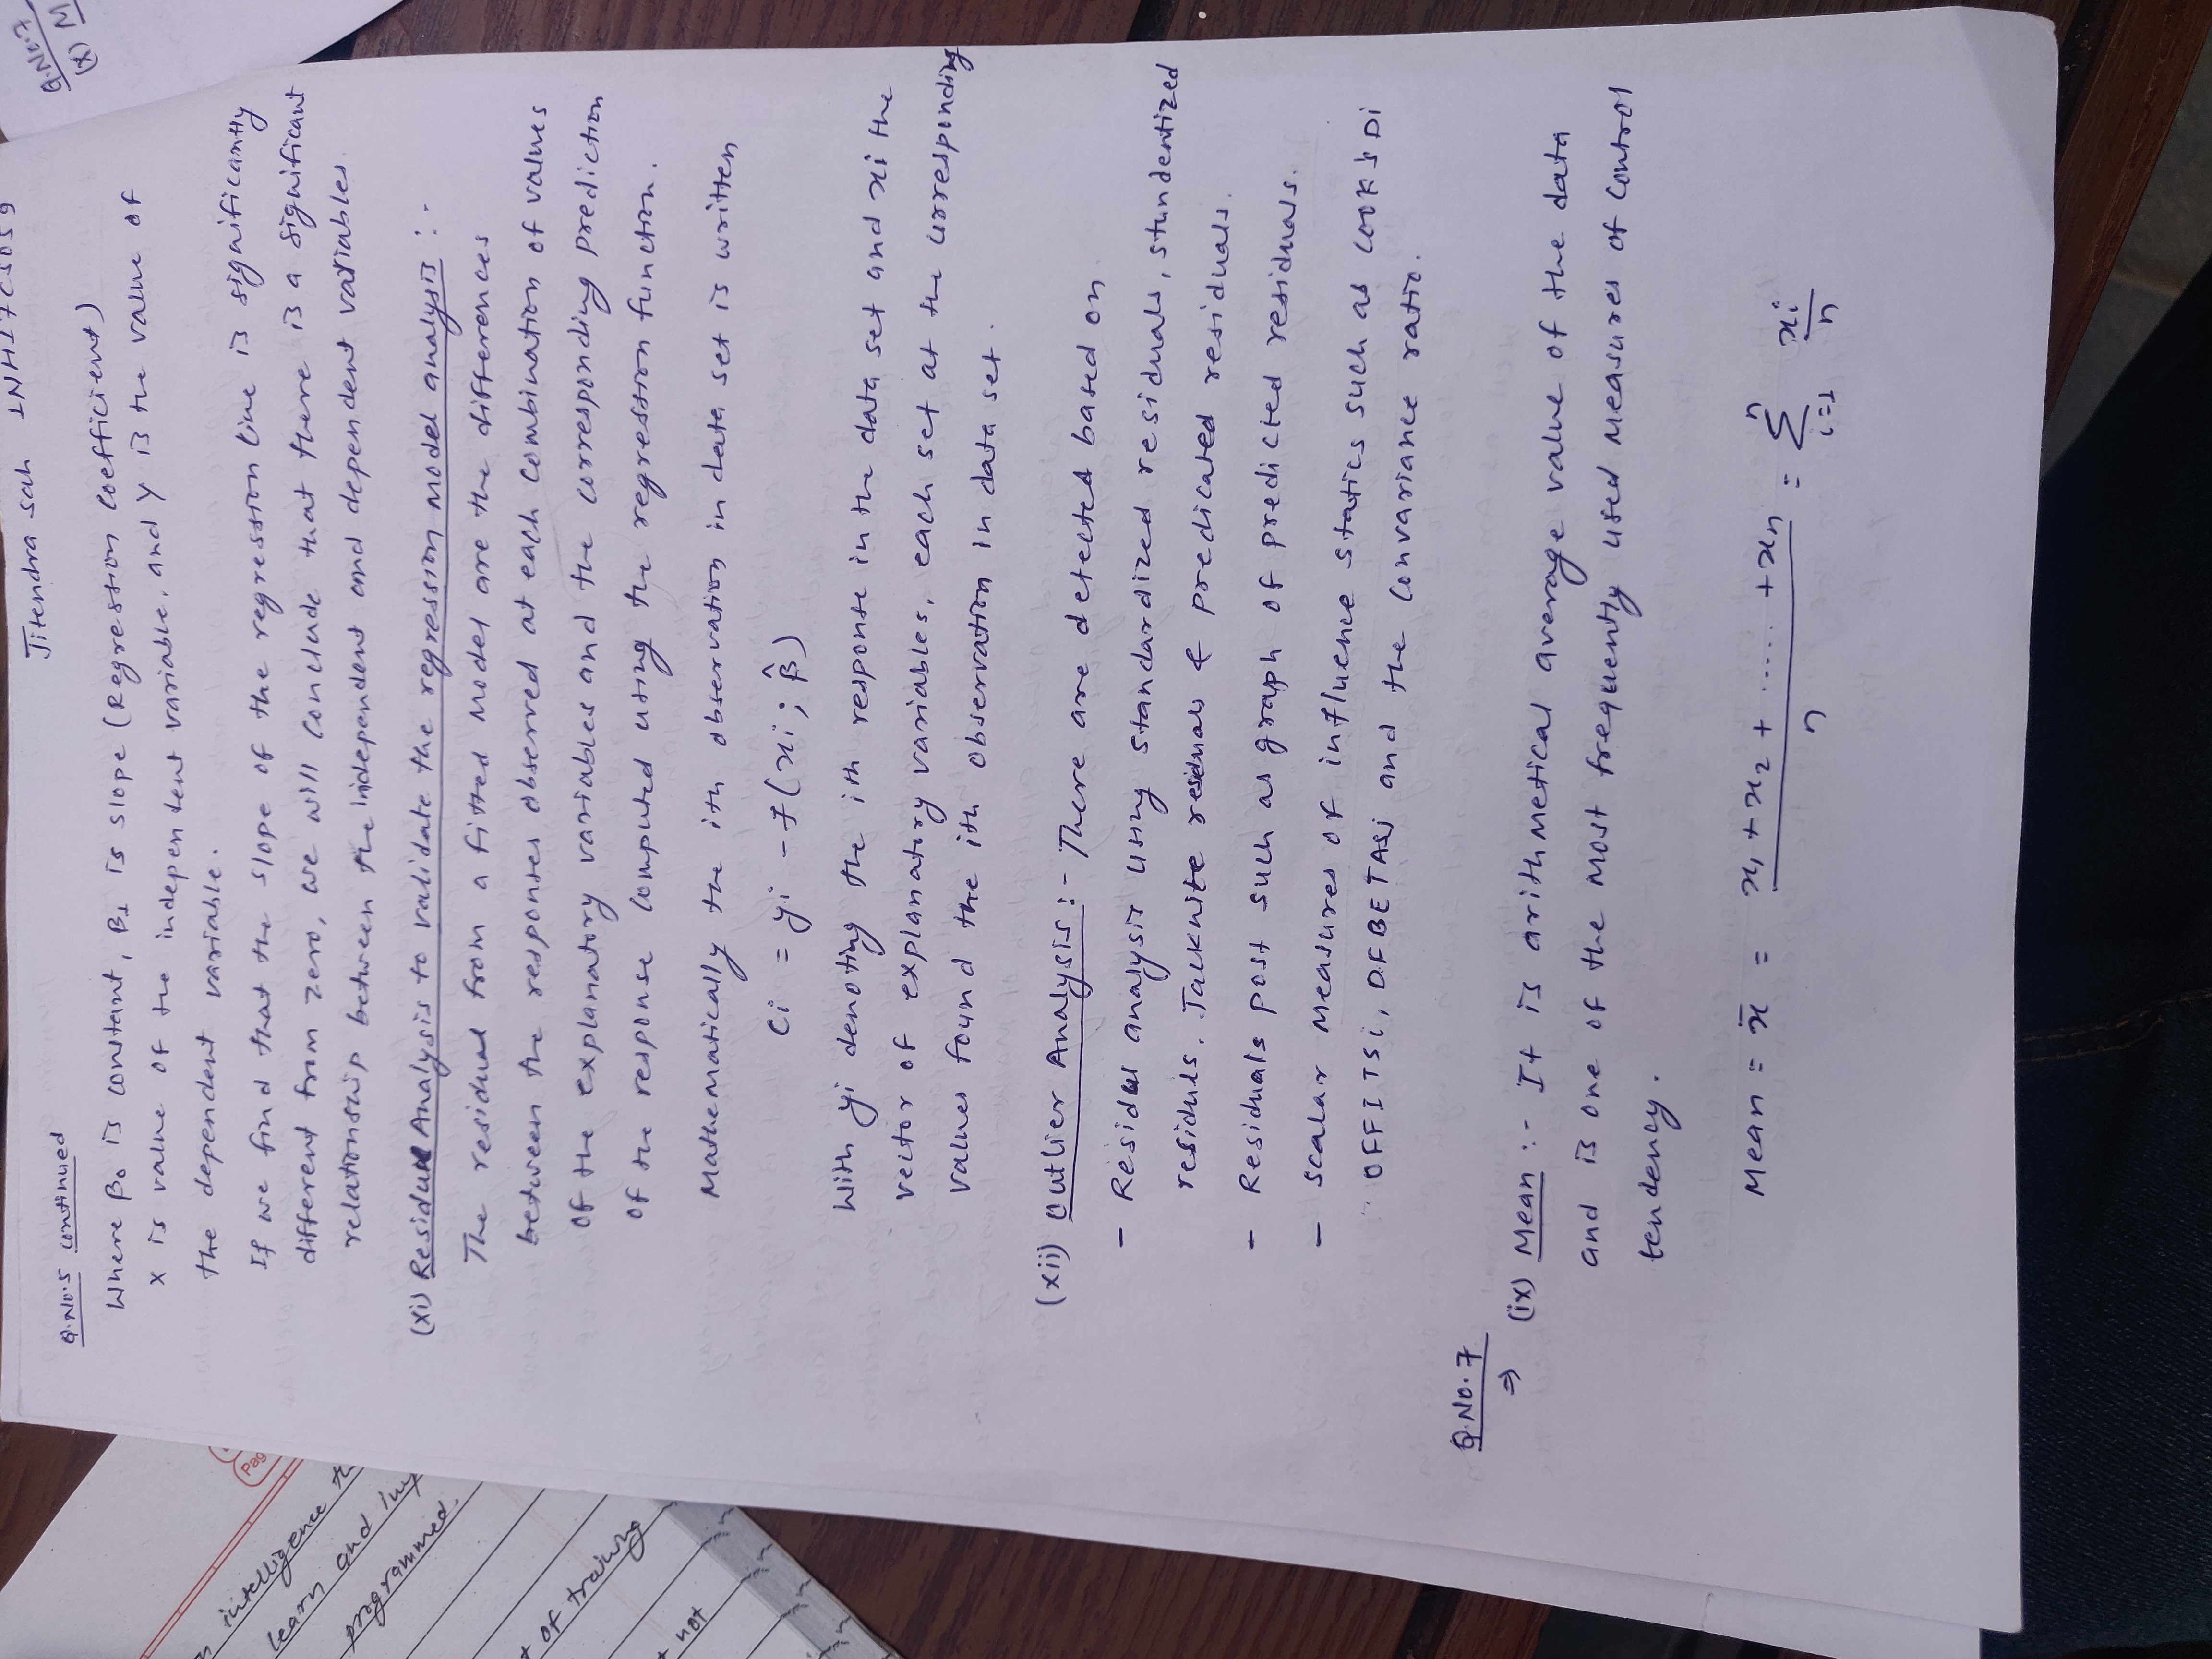 Jitendra sah 1NH17CS059
Q.No.5 continued
Where β₀ is constant, β₁ is slope (Regression coefficient)
x is value of the independent variable, and y is the value of
the dependent variable.
If we find that the slope of the regression line is significantly
different from zero, we will conclude that there is a significant
relationship between the independent and dependent variables.
(xi) Residual Analysis to validate the regression Model analysis :-
The residual from a fitted Model are the differences
between the responses observed at each combination of values
of the explanatory variables and the corresponding prediction
of the response computed using the regression function.
Mathematically the ith observation in data set is written
ei = yi - f(xi; β̂)
With yi denoting the ith response in the data set and xi the
vector of explanatory variables, each set at the corresponding
values found the ith observation in data set.
(xii) Outlier Analysis :- There are detected based on
- Residul analysis using standardized residuals, stundentized
residuls. Jackknite residuals & predicated residuals.
- Residuals post such as graph of predicted residuals.
- Scalar Measures of influence statics such as cook's Di
OFFITSi, DFBETASj and the Convariance ratio.
Q.No.7
⇒ (ix) Mean :- It is arithmetical average value of the data
and is one of the Most frequently used Measures of control
tendency.
Mean = x̄ = x₁+x₂+.....+xn / n = n Σ i=1 xi/n
Q.No.7
(x) M
Pag
intelligence th
learn and imp
programmed.
of training
not